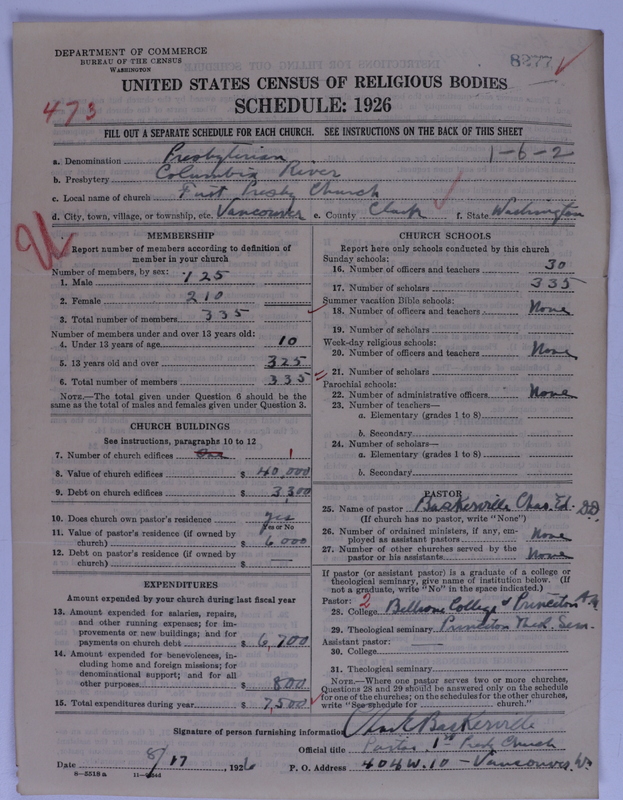 DEPARTMENT OF COMMERCE
BUREAU OF THE CENSUS
WASHINGTON
8277
UNITED STATES CENSUS OF RELIGIOUS BODIES
473
SCHEDULE: 1926
FILL OUT A SEPARATE SCHEDULE FOR EACH CHURCH. SEE INSTRUCTIONS ON THE BACK OF THIS SHEET
a. Denomination Presbyterian 1-6-2
b. Presbytery Columbia River
c. Local name of church First Presby Church
d. City, town, village, or township, etc. Vancouver e. County Clark f. State Washington
MEMBERSHIP
Report number of members according to definition of
member in your church
Number of members, by sex:
1. Male 125
2. Female 210
3. Total number of members 335
Number of members under and over 13 years old:
4. Under 13 years of age 10
5. 13 years old and over 325
6. Total number of members 335
NOTE.—The total given under Question 6 should be
same as the total of males and females given under Question 3.
CHURCH BUILDINGS
See instructions, paragraphs 10 to 12
7. Number of church edifices One 1
8. Value of church edifices $ 40,000
9. Debt on church edifices $ 3,300
10. Does church own pastor's residence yes
Yes or No
11. Value of pastor's residence (if owned by
church) $ 6000
12. Debt on pastor's residence (if owned by
church) $ —
EXPENDITURES
Amount expended by your church during last fiscal year
13. Amount expended for salaries, repairs,
and other running expenses; for im-
provements or new buildings; and for
payments on church debt $ 6,700
14. Amount expended for benevolences, in-
cluding home and foreign missions; for
denominational support; and for all
other purposes $ 800
15. Total expenditures during year $ 7,500
CHURCH SCHOOLS
Report here only schools conducted by this church
Sunday schools:
16. Number of officers and teachers 30
17. Number of scholars 335
Summer vacation Bible schools:
18. Number of officers and teachers None
19. Number of scholars
Week-day religious schools:
20. Number of officers and teachers None
21. Number of scholars
Parochial schools:
22. Number of administrative officers None
23. Number of teachers—
a. Elementary (grades 1 to 8)
b. Secondary
24. Number of scholars—
a. Elementary (grades 1 to 8)
b. Secondary
PASTOR
25. Name of pastor Baskerville Chas Ed. DD.
(If church has no pastor, write "None")
26. Number of ordained ministers, if any, em-
ployed as assistant pastors None
27. Number of other churches served by the
pastor or his assistants None
If pastor (or assistant pastor) is a graduate of a college or
theological seminary, give name of institution below. (If
not a graduate, write "No" in the space indicated.)
Pastor: 2
28. College Bellevue College & Princeton A.M
29. Theological seminary Princeton Theol. Sem.
Assistant pastor:
30. College
31. Theological seminary
NOTE.—Where one pastor serves two or more churches,
Questions 28 and 29 should be answered only on the schedule
for one of the churches; on the schedules for the other churches,
write "See schedule for church."
Signature of person furnishing information Chas E Baskerville
Official title Pastor 1st Presb Church
Date 8/17, 1926 P. O. Address 404 W. 10 - Vancouver, Wn
8-5518 a